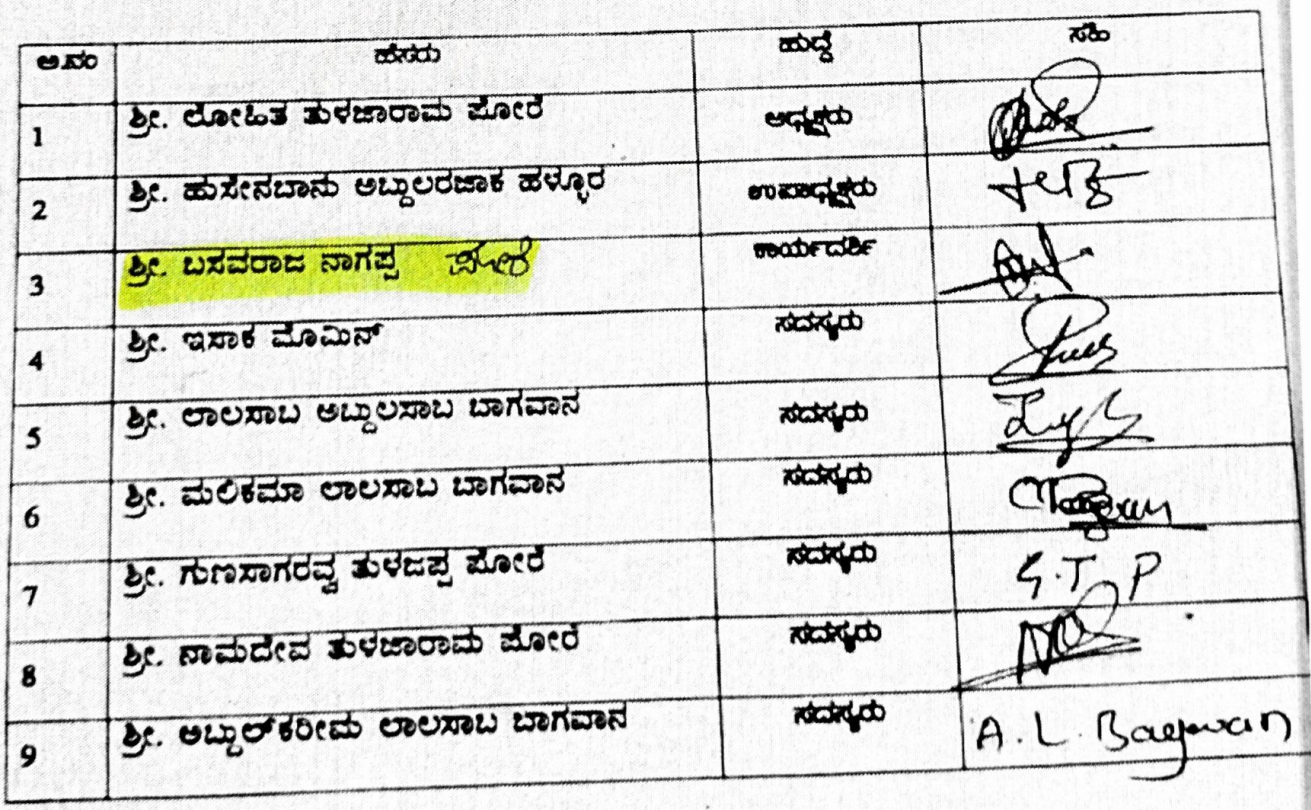 ಅ.ನಂ ಹೆಸರು ಹುದ್ದೆ ಸಹಿ
1 ಶ್ರೀ. ಲೋಹಿತ ತುಳಜಾರಾಮ ಪೋರೆ ಅಧ್ಯಕ್ಷರು
2 ಶ್ರೀ. ಹುಸೇನಬಾನು ಅಬ್ದುಲರಜಾಕ ಹಳ್ಳೂರ ಉಪಾಧ್ಯಕ್ಷರು
3 ಶ್ರೀ. ಬಸವರಾಜ ನಾಗಪ್ಪ ಪೋರೆ ಕಾರ್ಯದರ್ಶಿ
4 ಶ್ರೀ. ಇಸಾಕ ಮೊಮಿನ್ ಸದಸ್ಯರು
5 ಶ್ರೀ. ಲಾಲಸಾಬ ಅಬ್ದುಲಸಾಬ ಬಾಗವಾನ ಸದಸ್ಯರು
6 ಶ್ರೀ. ಮಲಿಕಮಾ ಲಾಲಸಾಬ ಬಾಗವಾನ ಸದಸ್ಯರು
7 ಶ್ರೀ. ಗುಣಸಾಗರವ್ವ ತುಳಜಪ್ಪ ಪೋರೆ ಸದಸ್ಯರು G.T.P
8 ಶ್ರೀ. ನಾಮದೇವ ತುಳಜಾರಾಮ ಪೋರೆ ಸದಸ್ಯರು
9 ಶ್ರೀ. ಅಬ್ದುಲ್‌ಕರೀಮ ಲಾಲಸಾಬ ಬಾಗವಾನ ಸದಸ್ಯರು A.L.Bagwan